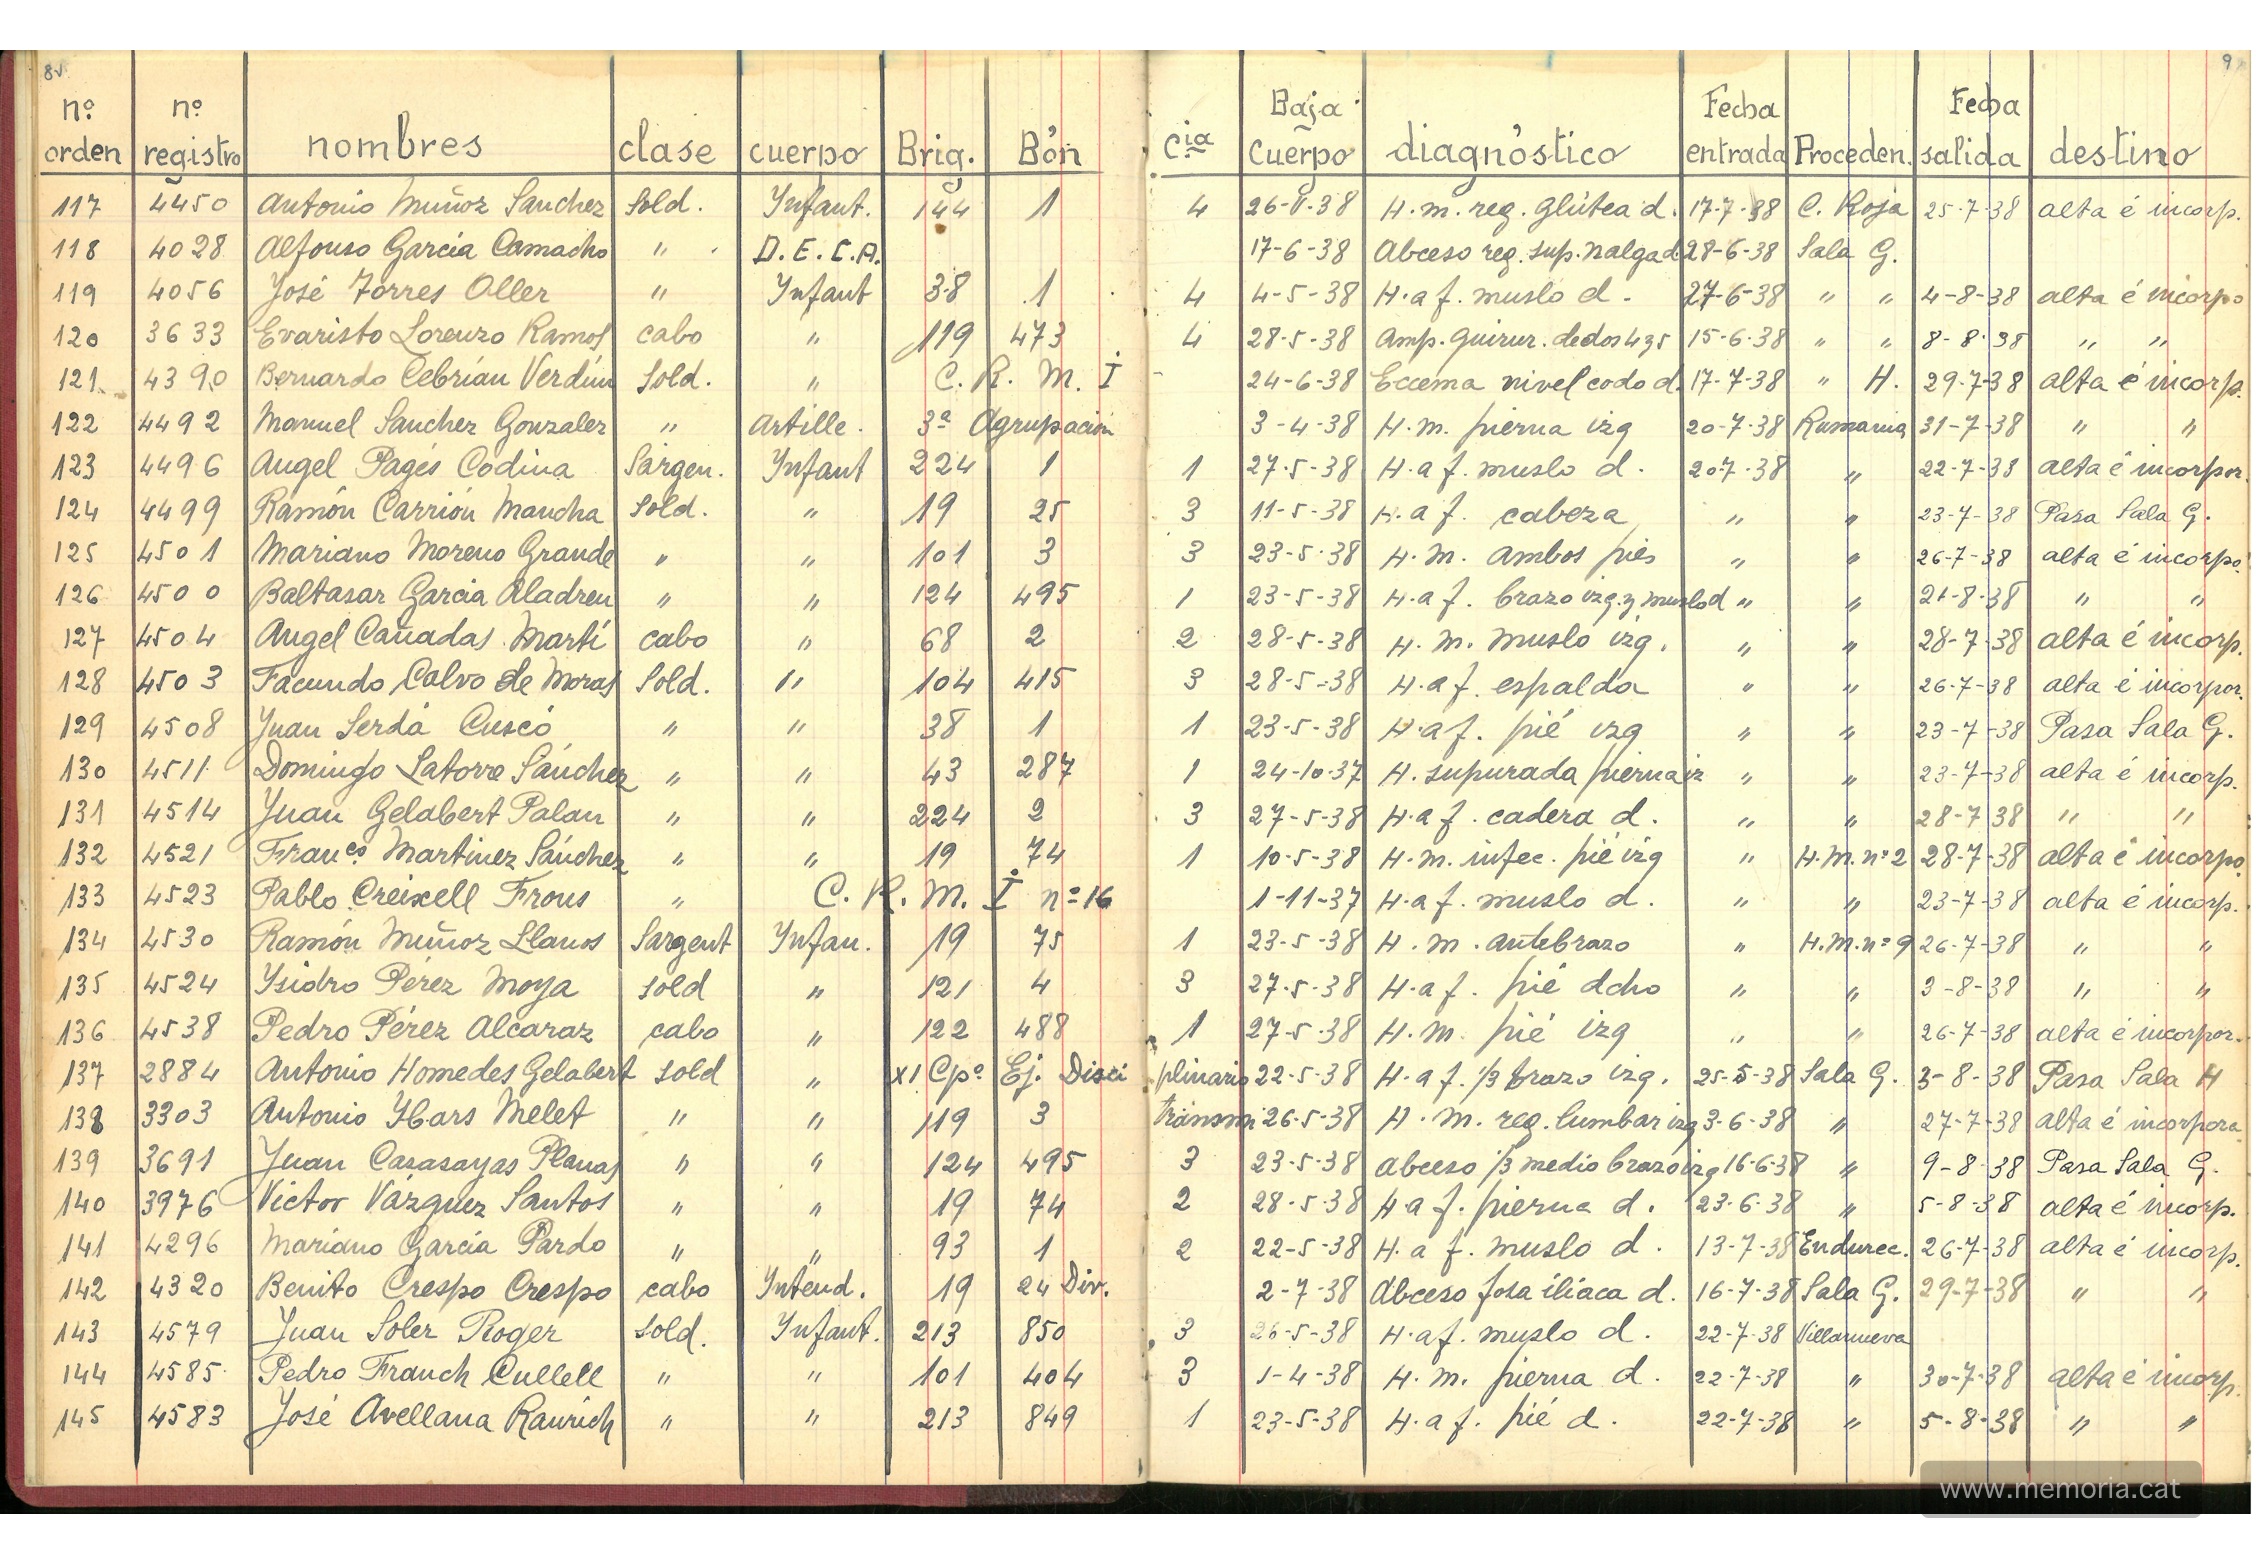 8 9
nº nº Baja Fecha Fecha
orden registro nombres clase cuerpo Brig. Bón cia Cuerpo diagnóstico entrada Proceden. salida destino
117 4450 Antonio Muñoz Sanchez Sold. Ynfant. 144 1 4 26-5-38 H.m. reg. glútea d. 17-7-38 C. Roja 25-7-38 alta é incorp.
118 4028 Alfonso García Camacho " D.E.C.A. 17-6-38 Abceso reg. sup. nalga d 28-6-38 Sala G.
119 4056 José Torres Oller " Ynfant 38 1 4 4-5-38 H.a f. muslo d. 27-6-38 " " 4-8-38 alta é incorpo
120 3633 Evaristo Lorenzo Ramos cabo " 119 473 4 28-5-38 Amp. quirur. dedos 4 y 5 15-6-38 " " 8-8-38 " "
121 4390 Bernardo Cebrián Verdún Sold. " C. R. M. I 24-6-38 Eccema nivel codo d. 17-7-38 " H. 29-7-38 alta é incorp.
122 4492 Manuel Sanchez Gonzalez " Artille. 3ª Agrupación 3-4-38 H.m. pierna izq 20-7-38 Rumania 31-7-38 " "
123 4496 Angel Pagés Codina Sargen. Ynfant 224 1 1 27-5-38 H.a f. muslo d. 20 7-38 " 22-7-38 alta é incorpor.
124 4499 Ramón Carrión Mancha Sold. " 19 25 3 11-5-38 H.a f. cabeza " " 23-7-38 Pasa Sala G.
125 4501 Mariano Moreno Grande " " 101 3 3 23-5-38 H.M. ambos pies " " 26-7-38 alta é incorpo.
126 4500 Baltasar Garcia Aladren " " 124 495 1 23-5-38 H.a f. brazo izq. y muslo d " " 21-8-38 " "
127 4504 Angel Cañadas Martí cabo " 68 2 2 28-5-38 H.m. muslo izq. " " 28-7-38 alta é incorp.
128 4503 Facundo Calvo de Moras Sold. " 104 415 3 28-5-38 H.a f. espalda " " 26-7-38 alta é incorpor.
129 4508 Juan Serdá Cuscó " " 38 1 1 23-5-38 H.a f. pié izq " " 23-7-38 Pasa Sala G.
130 4511 Domingo Latorre Sánchez " " 43 287 1 24-10-37 H. supurada pierna iz " " 23-7-38 alta é incorp.
131 4514 Juan Gelabert Palau " " 224 2 3 27-5-38 H.a f. cadera d. " " 28-7-38 " "
132 4521 Franco Martinez Sánchez " " 19 74 1 10-5-38 H.m. infec. pié izq " H.M. nº 2 28-7-38 alta é incorpo.
133 4523 Pablo Creixell Frous " C. R. M. I nº 16 1-11-37 H.a f. muslo d. " " 23-7-38 alta é incorp.
134 4530 Ramón Muñoz Llanos Sargent Ynfan. 19 75 1 23-5-38 H.m. antebrazo " H.M. nº 9 26-7-38 " "
135 4524 Ysidro Pérez Moya sold " 121 4 3 27-5-38 H.a f. pié dcho " " 3-8-38 " "
136 4538 Pedro Pérez Alcaraz cabo " 122 488 1 27-5-38 H.m. pié izq " " 26-7-38 alta é incorpor.
137 2884 Antonio Homedes Gelabert sold " XI Cpº Ej. Disci plinario 22-5-38 H.a f. 1/3 brazo izq. 25-5-38 Sala G. 3-8-38 Pasa Sala H
138 3303 Antonio Ybars Melet " " 119 3 transmi 26-5-38 H.m. reg. lumbar izq 3-6-38 " 27-7-38 alta é incorpora
139 3691 Juan Casasayas Planas " " 124 495 3 23-5-38 Abceso 1/3 medio brazo izq 16-6-38 " 9-8-38 Pasa Sala G.
140 3976 Victor Vázquez Santos " " 19 74 2 28-5-38 H.a f. pierna d. 23-6-38 " 5-8-38 alta é incorp.
141 4296 Mariano García Pardo " " 93 1 2 22-5-38 H.a f. muslo d. 13-7-38 Endurec. 26-7-38 alta é incorp.
142 4320 Benito Crespo Crespo cabo Yntend. 19 24 Div. 2-7-38 Abceso fosa ilíaca d. 16-7-38 Sala G. 29-7-38 " "
143 4579 Juan Soler Roger sold. Ynfant. 213 850 3 26-5-38 H.a f. muslo d. 22-7-38 Villanueva
144 4585 Pedro Franch Cullell " " 101 404 3 1-4-38 H.m. pierna d. 22-7-38 " 30-7-38 alta é incorp.
145 4583 José Avellana Raurich " " 213 849 1 23-5-38 H.a f. pié d. 22-7-38 " 5-8-38 " "
www.memoria.cat